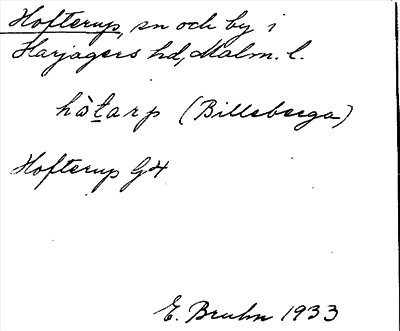 Hofterup, sn och by i
Harjagers hd, Malm. l.
hòtarp (Billeberga)
Hofterup G4
E. Bruhn 1933